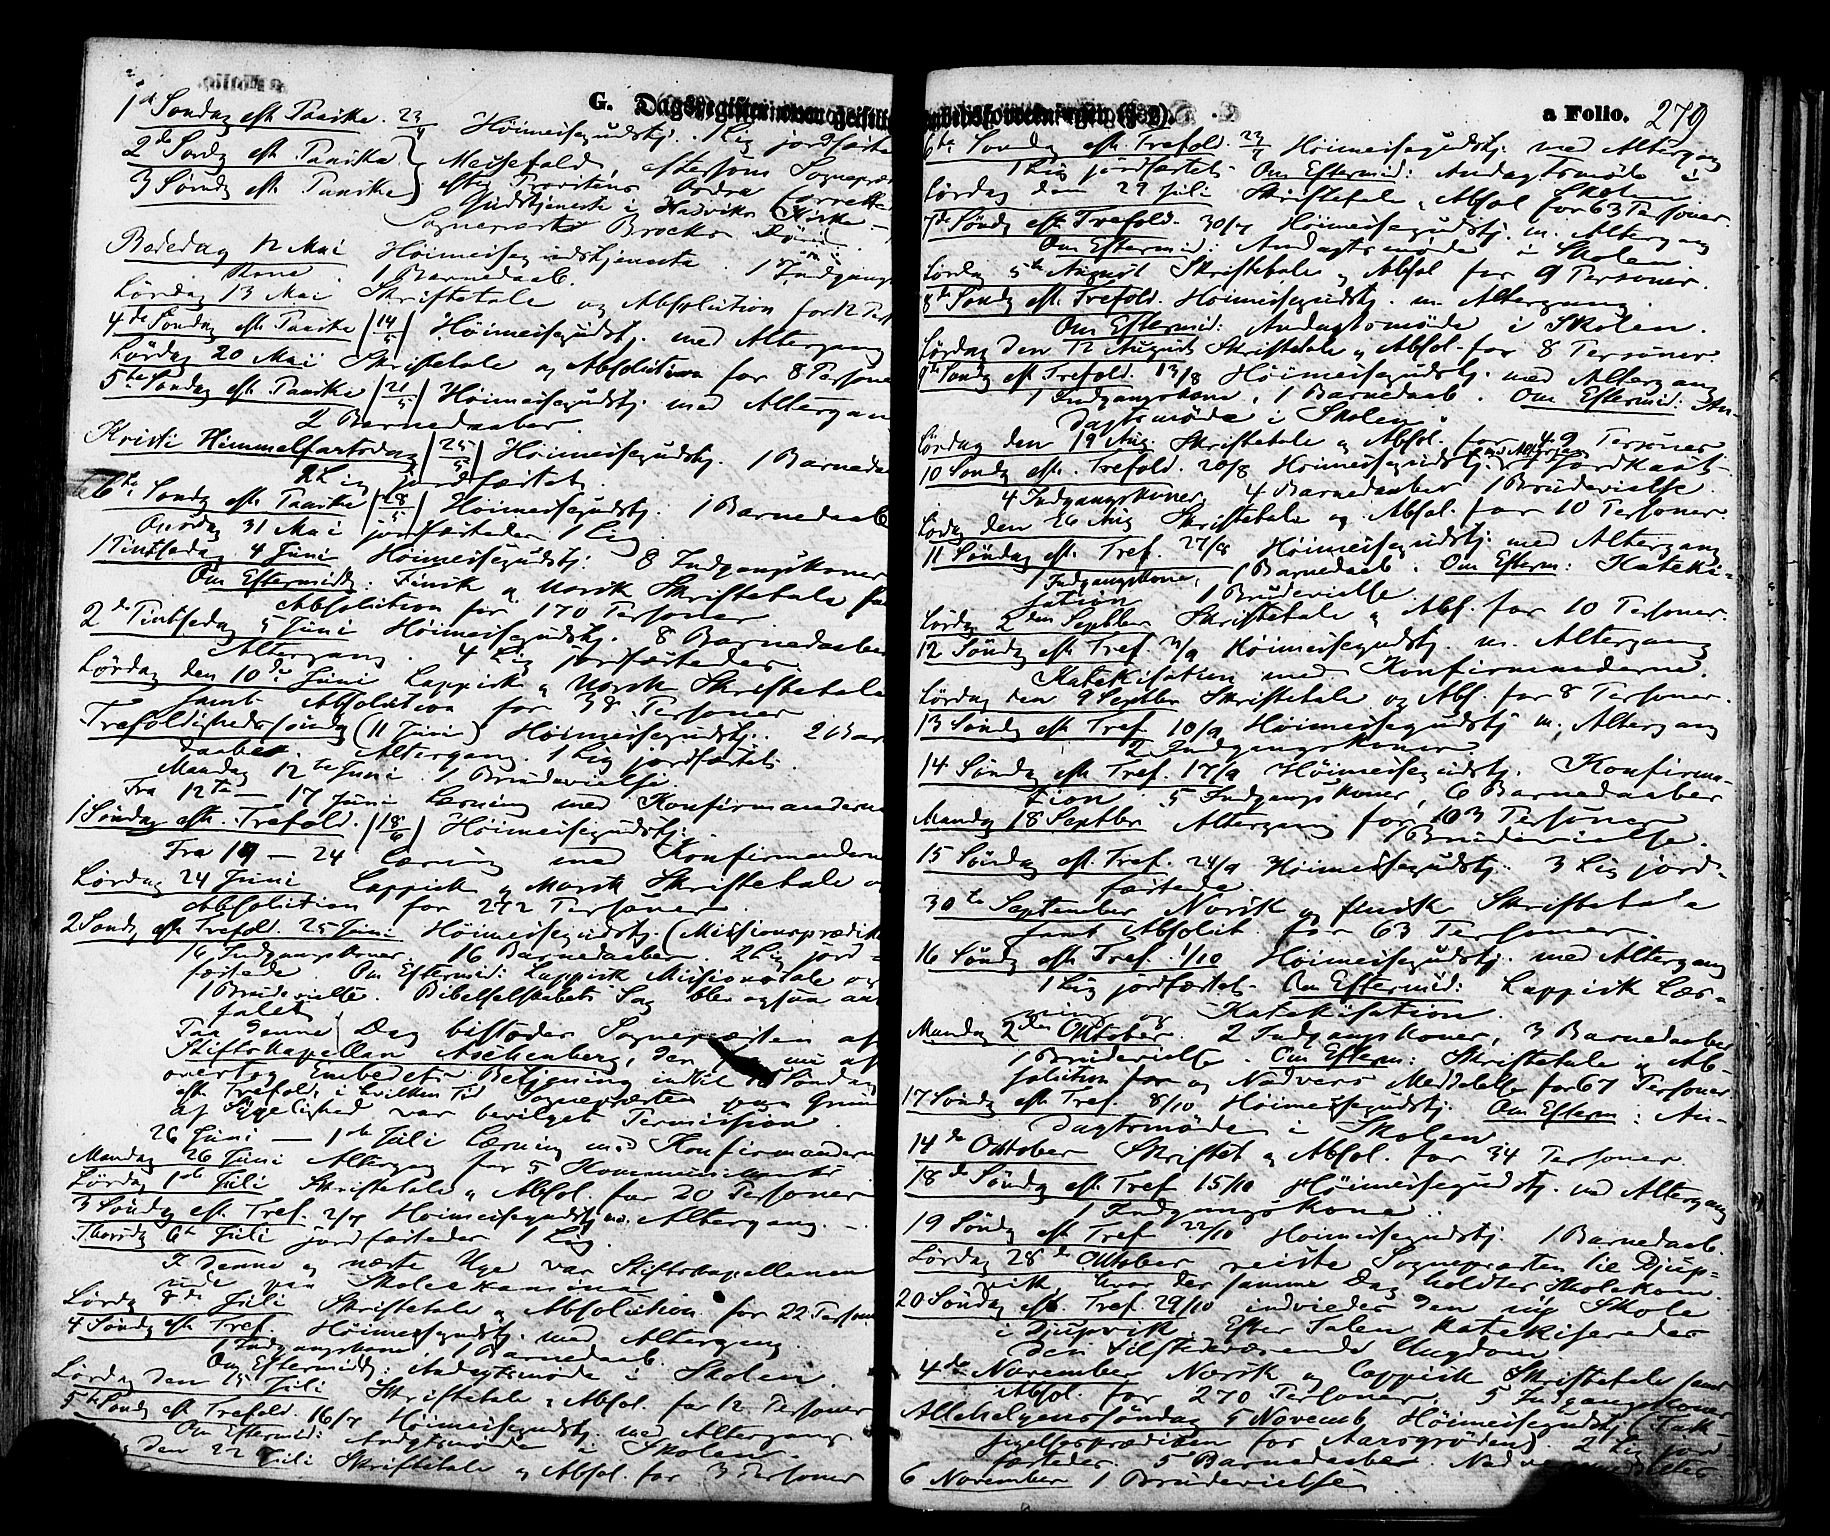 G. Dagsregister
a Folio. 279
1ste Søndag eft. Paaske. 23/4 Høimessegudstj. 1 Lig jordfæstet
2de Søndg eft. Paaske
3 Søndg eft. Paaske
Messefald, eftersom Sognepræsten
efter Provstens Ordre forrettede
Gudstjeneste i Kirke
Sognepræst Brocks
Bededag 12 Mai Høimessegudstjeneste. 1 Indgangs-
kone 1 Barnedaab.
Lördag 13 Mai Skriftetale og Absolution for 12 Pers
4de Søndag eft. Paaske 14/5 Høimessegudstj. med Altergang
Lördag 20 Mai Skriftetale og Absolution for 8 Persone
5te Søndag eft. Paaske 21/5 Høimessegudstj. med Altergan
2 Barnedaaber.
Kristi Himmelfartsdag 25/5 Høimessegudstj. 1 Barneda
2 Lig jordfæstet.
6te Søndg eft. Paaske 28/5 Høimessegudstj. 1 Barnedaab
Onsdag 31 Mai jordfæstedes 1 Lig
1 Pintsedag 4 Juni Høimessegudstj. 8 Indgangskoner
Om Eftermidg. Finsk og Norsk Skriftetale samt
Absolution for 170 Personer
2de Pintsedag 5 Juni Høimessegudstj. 8 Barnedaaber
Altergang. 4 Lig jordfæstedes.
Lördag den 10de Juni Lappisk og Norsk Skriftetale
samt Absolution for 38 Personer
Trefoldighedssøndag (11 Juni) Høimessegudstj. 2 Bar
daaber. Altergang. 1 Lig jordfæstet.
Mandag 12te Juni. 1 Brudevielse
Fra 12te – 17 Juni Læsning med Konfirmanderne
1 Søndag eft. Trefold. 18/6 Høimessegudstj.
Fra 19 – 24 Læsning med Konfirmandern
Lördag 24 Juni Lappisk og Norsk Skriftetale o
Absolution for 272 Personer
2 Søndg eft. Trefold. 25 Juni Høimessegudstj. (Missionsprædik
16 Indgangskoner. 16 Barnedaaber. 2 Lig jord-
fæstede. Om Eftermid: Lappisk Missionstale og
1 Brudevielse. Bibelselskabets Sag blev ogsaa an
falet
Paa denne Dag bistodes Sognepræsten af
Stiftskapellan Aschenberg, den nu af
overtog Embedets Betjening indtil 10 Søndag
eft. Trefold, i hvilken Tid Sognepræsten paa Grund
af Sygelighed var bevilget Permission.
26 Juni – 1ste Juli Læsning med Konfirmandern
Mandag 26 Juni Altergang for 5 Kommunikanter
Lördag 1ste Juli Skriftetale og Absol. for 20 Personer
3 Søndg eft. Tref. 2/7 Høimessegudstj m. Altergang
Thorsdg 6te Juli jordfæstedes 1 Lig.
I denne og næste Uge var Stiftskapellanen
ude paa Skoleexamina
Lördg 8de Juli Skriftetale og Absolution for 22 Person
4 Søndg eft. Tref. Høimessegudstj. med Altergang.
1 Indgangskone 1 Barnedaab.
Om Eftermidg: Andagtsmøde i Skolen.
Lördag den 15 Juli Skriftetale og Absol. for 12 Personer
5te Søndg eft Trefold. 16/7 Høimessegudstj. med Altergang
Om Eftermid: Andagtsmøde i Skolen.
den 22 Juli Skriftetale og Absol. for 3 Personer
6te Søndag eft. Trefold. 23/7 Høimessegudstj. med Altergang
1 Lig jordfæstet. Om Eftermid: Andagtsmøde i
Skolen
Lördag den 29 Juli Skriftetale & Absol for 63 Personer.
7de Søndg eft Trefold. 30/7 Høimessegudstj. m. Altergang
Om Eftermid: Andagtsmøde i Skolen
Lördag 5te August Skriftetale og Absol for 9 Personer.
8te Søndg eft. Trefold. Høimessegudstj. m. Altergang.
Om Eftermid: Andagtsmøde i Skolen.
Lördag den 12 August Skriftetale og Absol. for 8 Personer
9de Søndg eft Trefold. 13/8 Høimessegudstj. med Altergang
1 Indgangskone, 1 Barnedaab. Om Eftermid: An-
dagtsmøde i Skolen.
Lördag den 19 Aug. Skriftetale og Absol. for 49 Personer.
10 Søndg eft. Trefold. 20/8 Høimessegudstj. med Altergang 1 Jordkast-
4 Indgangskoner 4 Barnedaaber 1 Brudevielse.
Lördg den 26 Aug Skriftetale og Absol. for 10 Personer.
11 Søndag eft. Tref. 27/8 Høimessegudstj med Altergang
1 Indgangskone, 1 Barnedaab. Om Efterm: Kateki-
sation 1 Brudevielse.
Lördg 2den Septbr Skriftetale og Abs. for 10 Personer.
12 Søndg eft Tref. 3/9 Høimessegudstj. m. Altergang
Katekisation med Konfirmanderne.
Lördag den 9 Septbr Skriftetale og Abs. for 8 Personer.
13 Søndg eft Tref. 10/9 Høimessegudstj m. Altergang
2 Indgangskoner
14 Søndag eft Tref. 17/9 Høimessegudstj. Konfirma-
tion. 5 Indgangskoner, 6 Barnedaaber
Mandg 18 Septbr Altergang for 103 Personer
1 Brudevielse.
15 Søndag eft. Tref. 24/9 Høimessegudstj. 3 Lig jord-
fæstede.
30te September Norsk og finsk Skriftetale
samt Absolut. for 63 Personer.
16 Søndg eft Tref. 1/10 Høimessegudstj. med Altergang
1 Lig jordfæstet. Om Eftermid: Lappisk Læs-
ning og Katekisation.
Mandag 2den Oktober. 2 Indgangskoner, 3 Barnedaaber
1 Brudevielse. Om Efterm: Skriftetale og Ab-
solution for og Nadvers Meddelelse for 67 Personer
17 Søndg eft Tref. 8/10 Høimessegudstj. Om Efterm: An-
dagtsmøde i Skolen
14de Oktober Skriftet og Absol. for 34 Personer
18de Søndg eft. Tref 15/10 Høimessegudstj. md Altergang
1 Indgangskone.
19 Søndg eft Tref 22/10 Høimessegudstj. 1 Barnedaab.
Lördag 28de Oktober reiste Sognepræsten til Djup-
vik hvor der samme Dag holdtes Skolekom.
20 Søndag eft. Tref. 29/10 indviedes den ny Skole
i Djupvik. Efter Talen katekiseredes
den tilstedeværende Ungdom.
4de November Norsk og Lappisk Skriftetale samt
Absol. for 270 Personer. 5 Indgangskoner
Allehelgenssøndag 5 Novemb Høimessegudstj. (Tak-
sigelsesprædiken for Aarsgrøden). 2 Lig jord
fæstedes. 5 Barnedaaber.
6 November 1 Brudevielse